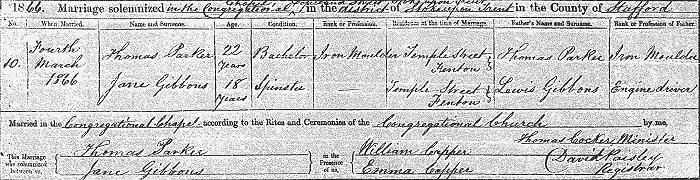 1866. Marriage solemnized in the Congregational in the District of Stoke upon Trent in the County of Stafford
No. When Married. Name and Surname. Age. Condition. Rank or Profession. Residence at the time of Marriage. Father's Name and Surname. Rank or Profession of Father.
10. Fourth March 1866 Thomas Parker 22 Years Bachelor Iron Moulder Temple Street Fenton Thomas Parker Iron Moulder
Jane Gibbons 18 Years Spinster — Temple Street Fenton Lewis Gibbons Engine driver
Married in the Congregational Chapel according to the Rites and Ceremonies of the Congregational Church by me,
Thomas Cocker Minister
This Marriage was solemnized between us, Thomas Parker Jane Gibbons in the Presence of us, William Capper Emma Capper David Paisley Registrar